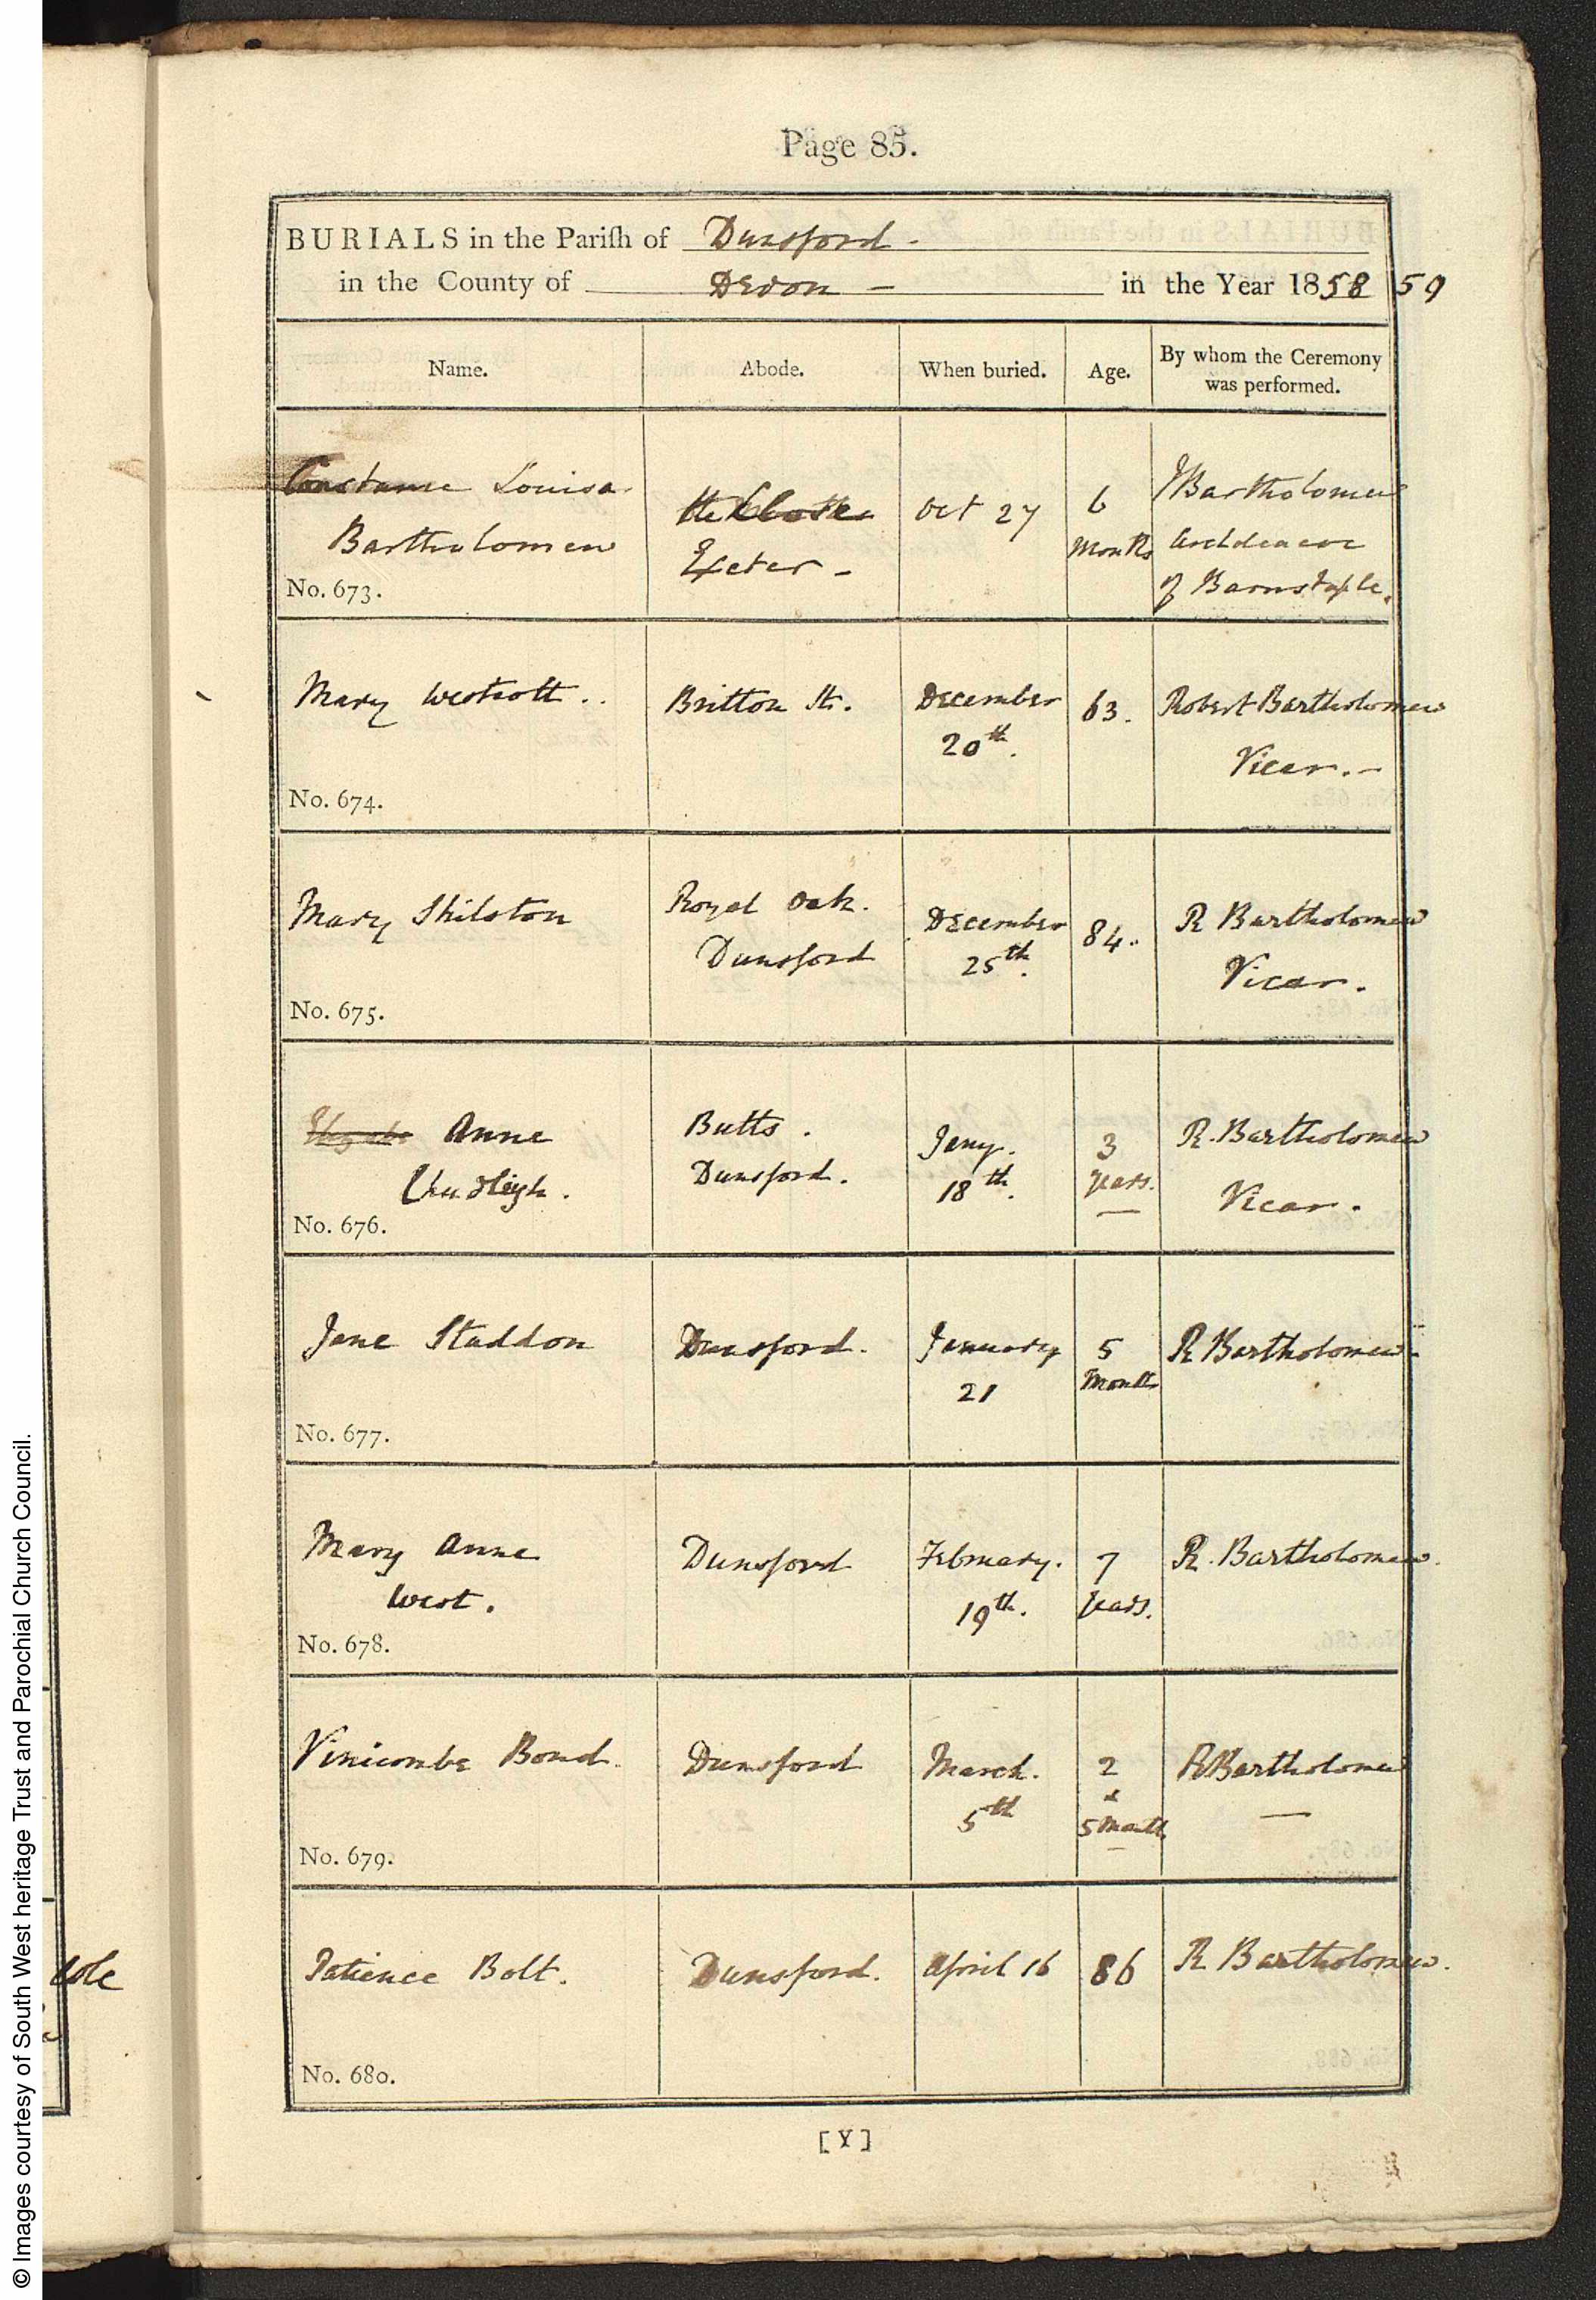 Page 85.
BURIALS in the Pariſh of Dunsford -
in the County of Devon - in the Year 1858 59
Name. Abode. When buried. Age. By whom the Ceremony was performed.
Constance Louisa
Bartholomew
No. 673.
the Close
Exeter -
Oct 27
6
Months
J Bartholomew
Archdeacon
of Barnstaple.
Mary Westcott ..
No. 674.
Britton St.
December
20th.
63.
Robert Bartholomew
Vicar. -
Mary Shilston
No. 675.
Royal Oak.
Dunsford
December
25th.
84.
R Bartholomew
Vicar.
Anne
Chudleigh.
No. 676.
Butts.
Dunsford.
Jany.
18th.
3
years.
R. Bartholomew
Vicar.
Jane Staddon
No. 677.
Dunsford.
January
21
5
Months
R Bartholomew
Mary Anne
West.
No. 678.
Dunsford
February.
19th.
7
years.
R. Bartholomew.
Vinicombe Bond.
No. 679.
Dunsford
March.
5th
2
&
5 Months
R Bartholomew
Patience Bolt.
No. 680.
Dunsford.
April 16
86
R Bartholomew.
[Y]
cole
© Images courtesy of South West heritage Trust and Parochial Church Council.